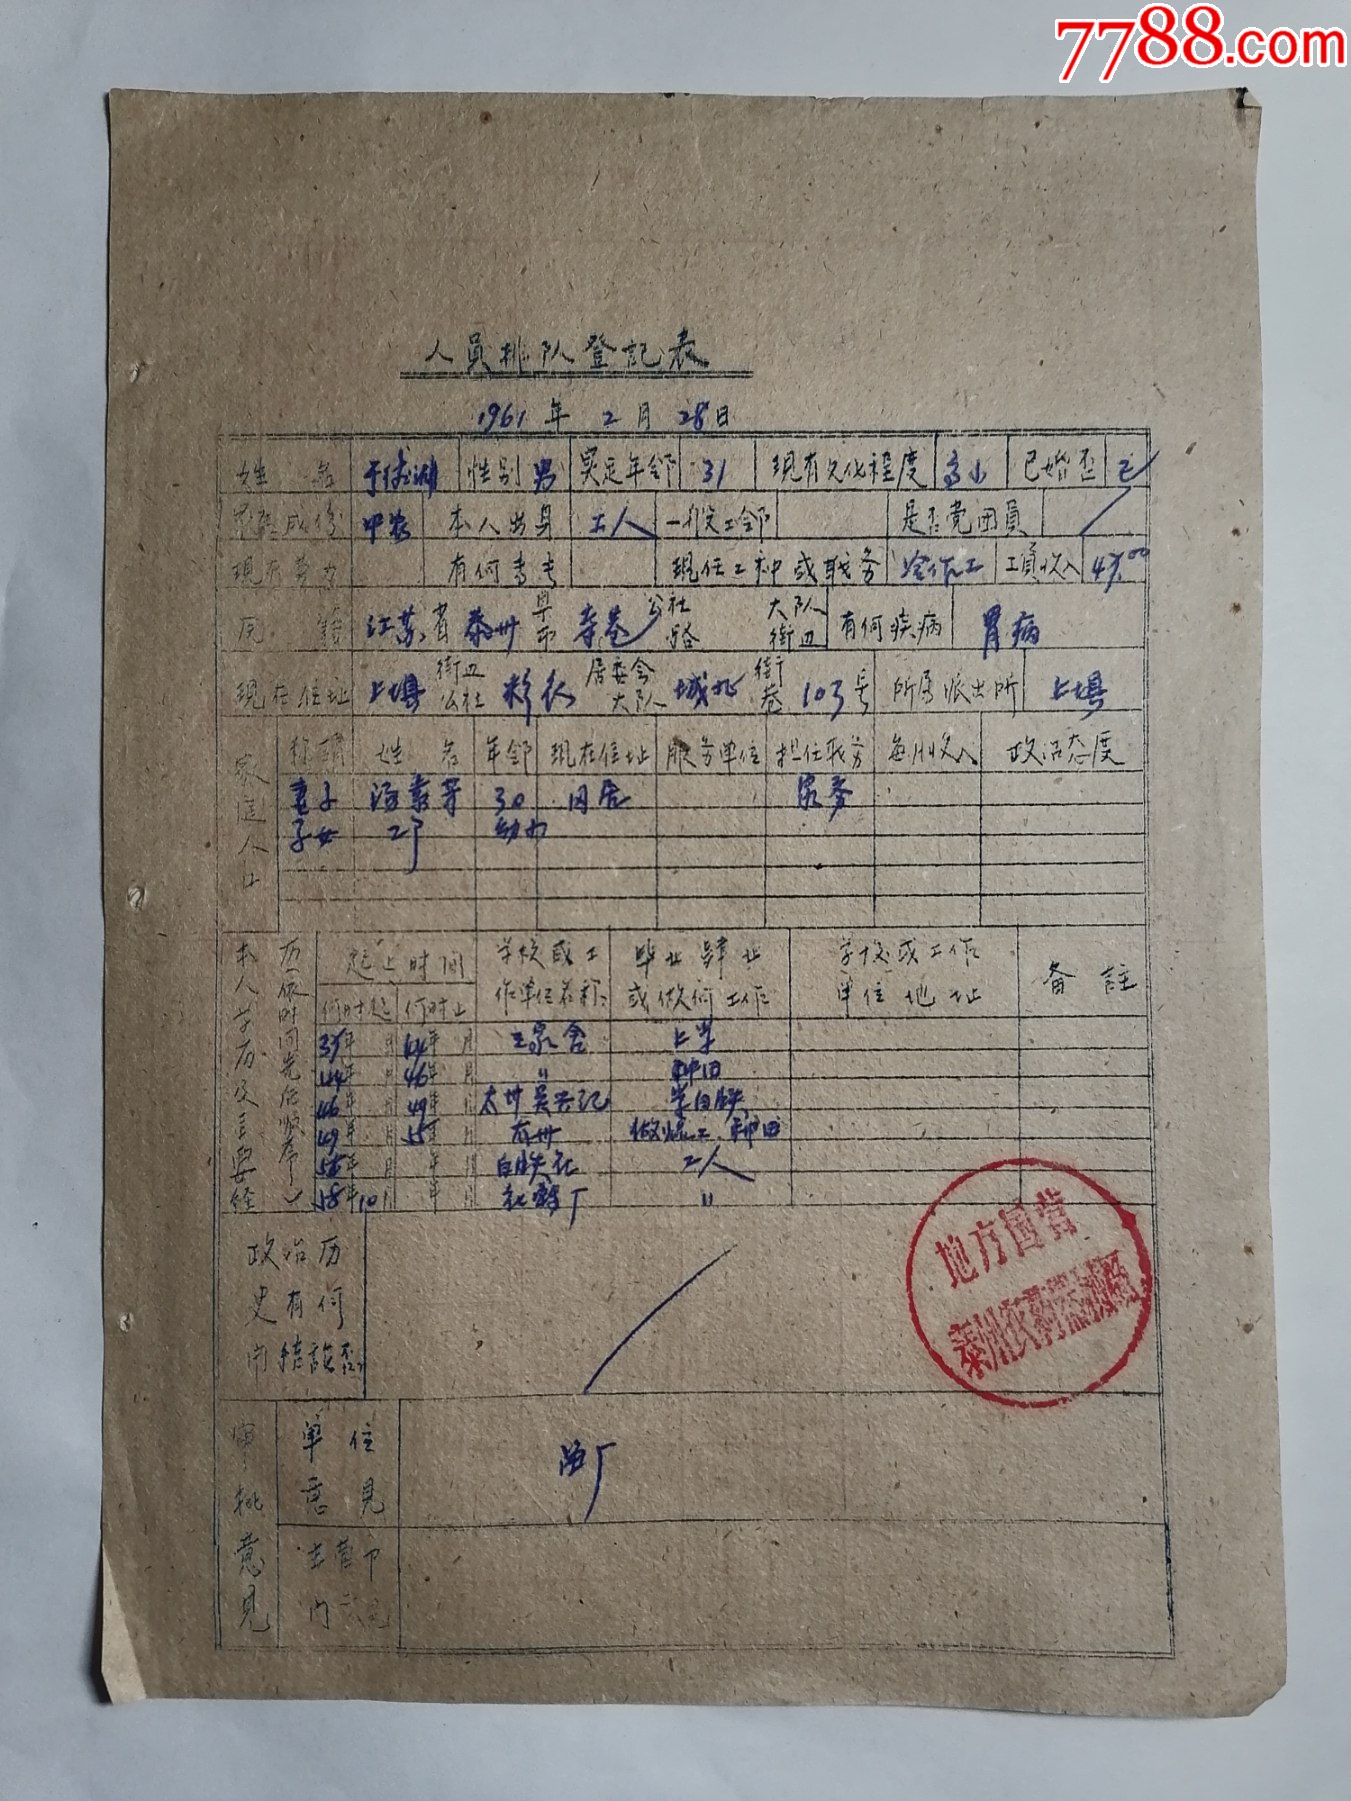 7788.com
人員排队登記表
1961年2月28日
姓名 性别 男 实足年令 31 現有文化程度 高小 已婚否 已
家庭成份 中农 本人出身 工人 一般工令 是否党团員
有何专长 現任工种或職务 冷作工 工資收入
原籍 江苏省泰州县市寺巷公社路大队街边 有何疾病 胃病
現在住址 上埧街边公社 居委会大队 城北街巷103号 所屬派出所 上埧
家庭人口 称謂 姓名 年令 現在住址 服务单位 担任職务 每月收入 政治态度
妻子 30 同居 家务
子女 2个 幼小
本人学历及主要经历(依时间先后順序) 起止时间 学校或工作单位名称 毕业肄业或做何工作 学校或工作单位地址 备註
何时起 何时止
年 月 44年 月 上学
44年 月 46年 月 〃 种田
46年 月 49年 月 学白铁
49年 月 年 月 种田
年 月 年 月 白铁社 工人
58年10月 年 月 〃
政治历史有何問結論否
地方国营
审批意见 单位意見 留厂
主管部门意见